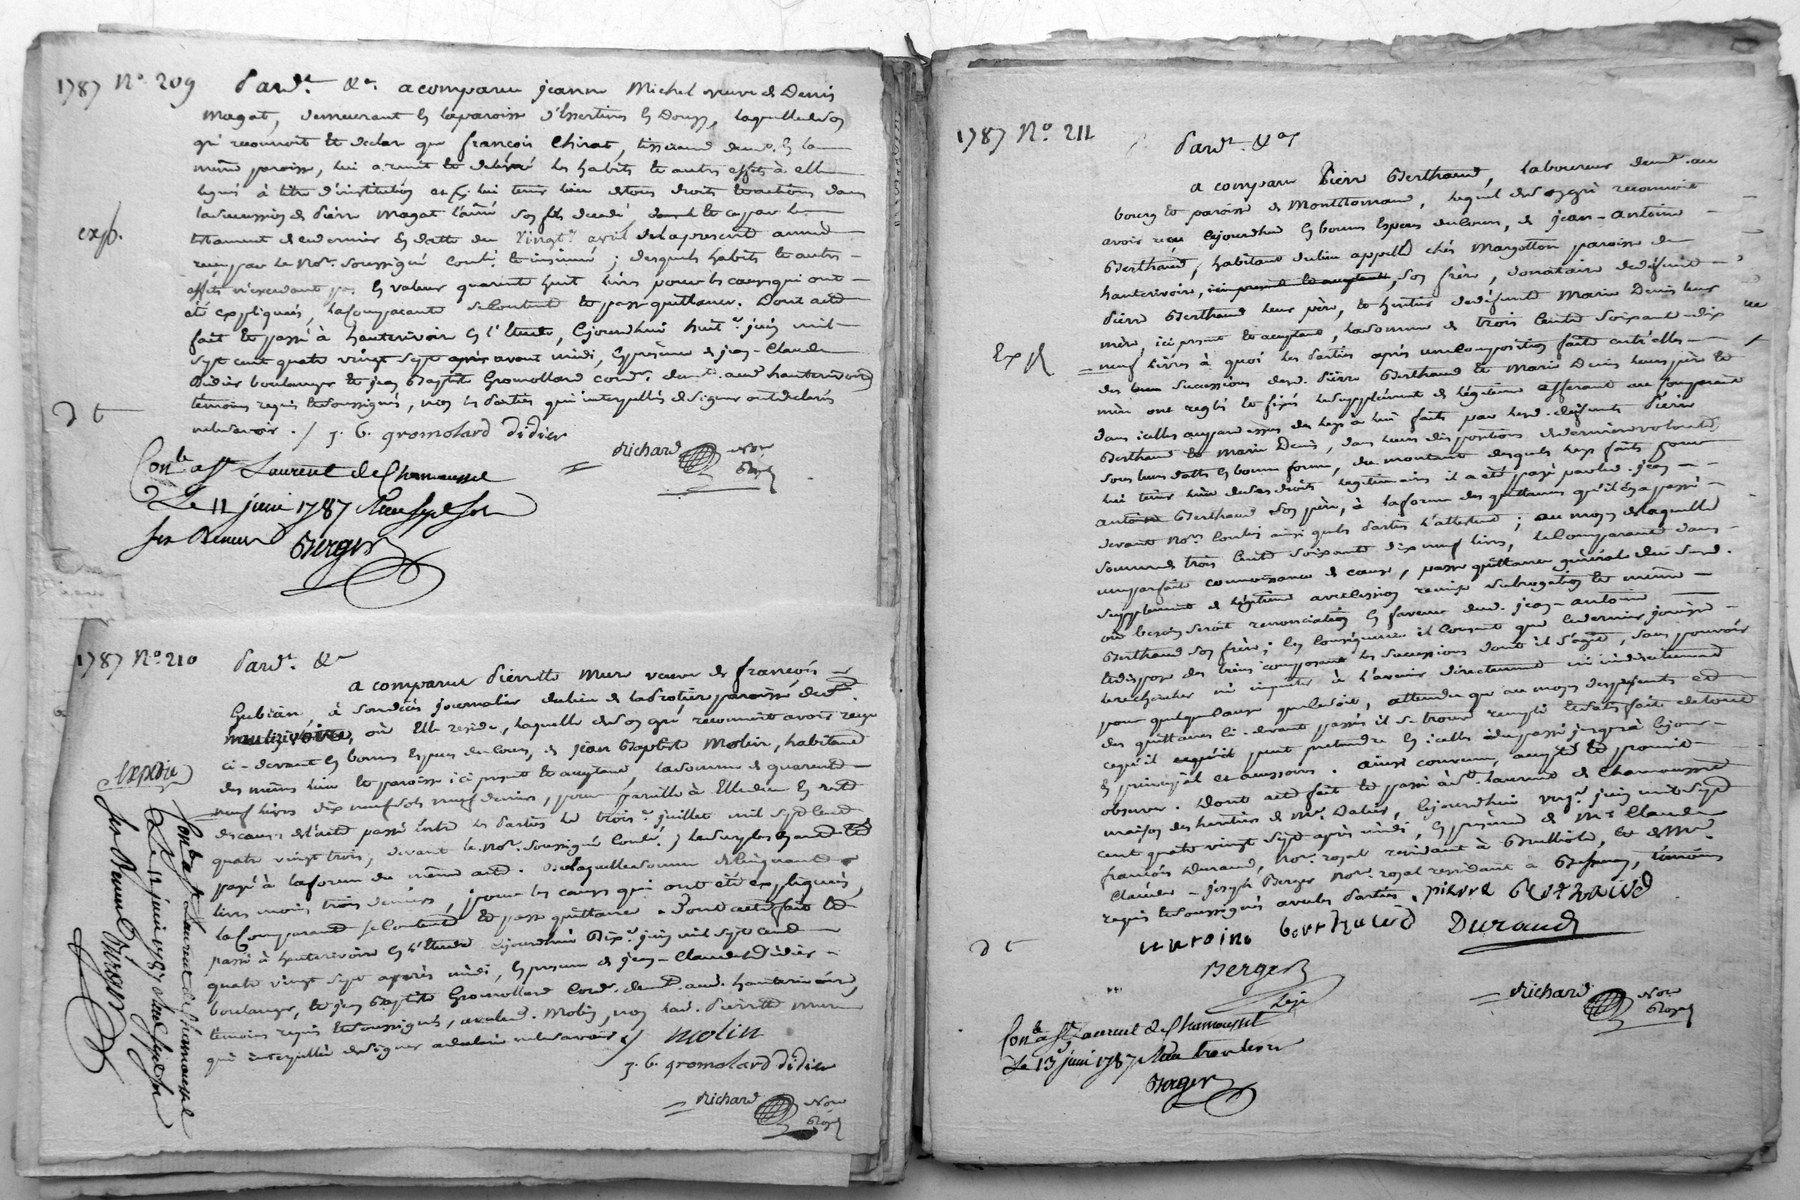 1787 N.º 209
Pardt. &a. a comparu jeanne Michel veuve de Denis
Magat, demeurant en la paroisse d'Essertines en Donzy, laquelle de son
gré reconnoit et declare que françois Chirat, tisserand demt. en la
même paroisse, lui a remis et delivré les habits et autres effets à elle
legués à titre d'institution et pr. lui tenir lieu de tous droits et actions dans
la succession de Pierre Magat l'ainé son fils decedé, dont le cas par le
testament de ce dernier en datte du vingt. avril de la presente année
reçu par le Nore. soussigné Contlé. et insinué ; desquels habits et autres
effets n'excedant pas en valeur quarente huit livres pour les causes qui ont
été expliquées, la comparante se contente et passe quittance. Dont acte
fait et passé à hauterivoire en l'Etude, cejourdhui huit. juin mil
sept cent quatre vingt sept après avant midi, en presence de jean-Claude
Didier boulanger et jean Baptiste Gromollard cordr. demts. aud. hauterivoire
temoins requis et soussignés, non les parties qui interpellées de signer ont declaré
ne le savoir ./ j. b. gromolard didier
exp.
d t
Richard Nore Royal
Conlé a St Laurent de Chamousset
Le 11 juin 1787 Reçu sept sols
six deniers Berger
1787 N.º 210
Pardt. &a
a comparu Pierrette Mure veuve de françois
Gubian, à son deces journalier du lieu de la Rotière paroisse dud.
hauterivoire, où Elle reside, laquelle de son gré, reconnoit avoir reçu
ci-devant en bonnes Especes de cours, de jean Baptiste Molin, habitant
des mêmes lieu et paroisse ici present et acceptant, la somme de quarente
neuf livres dix neuf sols neuf deniers, pour pareille à Elle due en reste
des causes de l'acte passé entre les parties le trois. juillet mil sept cent
quatre vingt trois, devant le Nore. soussigné Contlé. ; le surplus ayant été
payé à la forme du même acte. De laquelle somme de cinquante
livres moins trois deniers, pour les causes qui ont été expliquées,
la Comparante se contente et passe quittance. Dont acte fait et
passé à hauterivoire en l'Etude cejourdhui Dix. juin mil sept cent
quatre vingt sept après midi, en presence de jean-Claude Didier
boulanger, et jean Baptiste Gromollard Cordr. demts. aud. hauterivoire,
temoins requis et soussignés, avec led. Molin, non lad. Pierrette Mure
qui interpellée de signer a declaré ne le savoir ./ molin
j. b. gromolard didier
Richard Nore Royal
Expédié
Conlé a St Laurent de Chamousset
Le 11 juin 1787 Reçu sept sols
six deniers Berger
1787 N.º 211
Pardt. &a
a comparu Pierre Berthaud, laboureur demt. au
bourg et paroisse de Montromand, lequel de son gré reconnoit
avoir reçu cejourdhui en bonnes Especes de cours, de jean-antoine
Berthaud, habitant du lieu appellé chés Margotton paroisse de
hauterivoire, ici present et acceptant, son frère, donataire de defunt
Pierre Berthaud leur père, et heritier de defunte Marie Denis leur
mère, ici present et acceptant, la somme de trois Cents soixante dix
neuf livres à quoi les parties après une composition faite entr'elles
des biens successions desd. Pierre Berthaud et Marie Denis leurs père et
mère ont reglé et fixé le supplement de legitime afferant au comparant
dans icelles au par dessus des legs à lui faits par lesd. defunts Pierre
Berthaud et Marie Denis, dans leurs dispositions de derniere volonté,
sous leurs dattes en bonne forme, du montant desquels legs faits pour
lui tenir lieu de ses droits legitimaires il a été payé par led. jean
antoine Berthaud son frère, à la forme des quittances qu'il en a passé
devant Nores. Contlées ainsi que les parties l'attestent ; au moyen de laquelle
somme de trois Cents soixante dix neuf livres, le Comparant dans
une parfaite connoissance de cause, passe quittance générale dud. fond.
supplement de legitime avec cession remise subrogation et même
où besoin seroit renonciation en faveur dud. jean-antoine
Berthaud son frère ; en consequence il consent que ce dernier jouisse
et dispose des biens composant les successions dont il s'agit, sans pouvoir
le rechercher ni inquieter à l'avenir directement ni indirectement
pour quelque cause que ce soit, attendu qu'au moyen des presentes et
des quittances ci-devant passées il se trouve rempli et satisfait de tout
ce qu'il peut pretendre en icelles du passé jusqu'à ce jour
en principal et accessoires. ainsi convenu, accepté et promis
observer. Dont acte fait et passé à St. Laurent de Chamousset
maison des heritiers de Mr. Dalier, cejourdhui vingt. juin mil sept
cent quatre vingt sept après midi, en presence de Me. Claude
françois Durand, Nore. royal residant à Brullioles, et de Me.
Claude-joseph Berger Nore. royal residant à Bessenay, temoins
requis et soussignés avec les parties. pierre berthaud
Exp.
d t
antoine berthaud Durand
Berger
Richard Nore Royal
Conlé a St Laurent de Chamousset
Le 13 juin 1787 Reçu
Berger